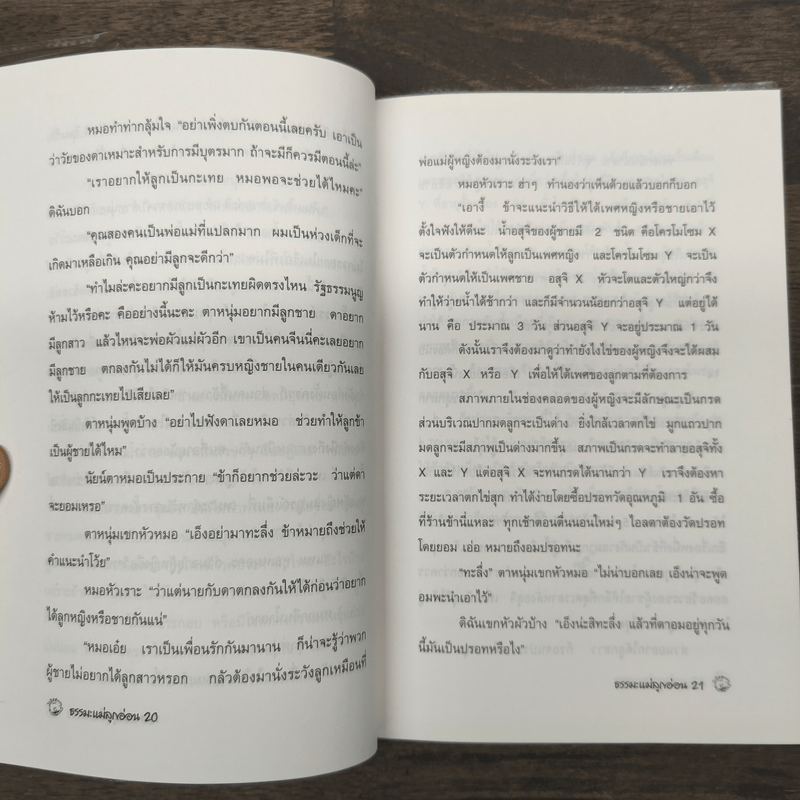 หมอทำท่ากลุ้มใจ “อย่าเพิ่งตบกันตอนนี้เลยครับ เอาเป็น
ว่าวัยของดาเหมาะสำหรับการมีบุตรมาก ถ้าจะมีก็ควรมีตอนนี้ล่ะ”
“เราอยากให้ลูกเป็นกะเทย หมอพอจะช่วยได้ไหมคะ”
ดิฉันบอก
“คุณสองคนเป็นพ่อแม่ที่แปลกมาก ผมเป็นห่วงเด็กที่จะ
เกิดมาเหลือเกิน คุณอย่ามีลูกจะดีกว่า”
“ทำไมล่ะคะอยากมีลูกเป็นกะเทยผิดตรงไหน รัฐธรรมนูญ
ห้ามไว้หรือคะ คืออย่างนี้นะคะ ตาหนุ่มอยากมีลูกชาย ดาอยาก
มีลูกสาว แล้วไหนจะพ่อผัวแม่ผัวอีก เขาเป็นคนจีนนี่คะเลยอยาก
มีลูกชาย ตกลงกันไม่ได้ก็ให้มันครบหญิงชายในคนเดียวกันเลย
ให้เป็นลูกกะเทยไปเสียเลย”
ตาหนุ่มพูดบ้าง “อย่าไปฟังดาเลยหมอ ช่วยทำให้ลูกข้า
เป็นผู้ชายได้ไหม”
นัยน์ตาหมอเป็นประกาย “ข้าก็อยากช่วยล่ะวะ ว่าแต่ดา
จะยอมเหรอ”
ตาหนุ่มเขกหัวหมอ “เอ็งอย่ามาทะลึ่ง ข้าหมายถึงช่วยให้
คำแนะนำโว้ย”
หมอหัวเราะ “ว่าแต่นายกับดาตกลงกันให้ได้ก่อนว่าอยาก
ได้ลูกหญิงหรือชายกันแน่”
“หมอเอ๋ย เราเป็นเพื่อนรักกันมานาน ก็น่าจะรู้ว่าพวก
ผู้ชายไม่อยากได้ลูกสาวหรอก กลัวต้องมานั่งระวังลูกเหมือนที่
ธรรมะแม่ลูกอ่อน 20
พ่อแม่ผู้หญิงต้องมานั่งระวังเรา”
หมอหัวเราะ ฮ่าๆ ทำนองว่าเห็นด้วยแล้วบอกก็บอก
“เอางี้ ข้าจะแนะนำวิธีให้ได้เพศหญิงหรือชายเอาไว้
ตั้งใจฟังให้ดีนะ น้ำอสุจิของผู้ชายมี 2 ชนิด คือโครโมโซม X
จะเป็นตัวกำหนดให้ลูกเป็นเพศหญิง และโครโมโซม Y จะเป็น
ตัวกำหนดให้เป็นเพศชาย อสุจิ X หัวจะโตและตัวใหญ่กว่าจึง
ทำให้ว่ายน้ำได้ช้ากว่า และก็มีจำนวนน้อยกว่าอสุจิ Y แต่อยู่ได้
นาน คือ ประมาณ 3 วัน ส่วนอสุจิ Y จะอยู่ประมาณ 1 วัน
ดังนั้นเราจึงต้องมาดูว่าทำยังไงไข่ของผู้หญิงจึงจะได้ผสม
กับอสุจิ X หรือ Y เพื่อให้ได้เพศของลูกตามที่ต้องการ
สภาพภายในช่องคลอดของผู้หญิงจะมีลักษณะเป็นกรด
ส่วนบริเวณปากมดลูกจะเป็นด่าง ยิ่งใกล้เวลาตกไข่ มูกแถวปาก
มดลูกจะมีสภาพเป็นด่างมากขึ้น สภาพเป็นกรดจะทำลายอสุจิทั้ง
X และ Y แต่อสุจิ X จะทนกรดได้นานกว่า Y เราจึงต้องหา
ระยะเวลาตกไข่สุก ทำได้ง่ายโดยซื้อปรอทวัดอุณหภูมิ 1 อัน ซื้อ
ที่ร้านข้านี่แหละ ทุกเช้าตอนตื่นนอนใหม่ๆ ไอลดาต้องวัดปรอท
โดยยอม เอ่อ หมายถึงอมปรอทนะ
“ทะลึ่ง” ตาหนุ่มเขกหัวหมอ “ไม่น่าบอกเลย เอ็งน่าจะพูด
อมพะนำเอาไว้”
ดิฉันเขกหัวผัวบ้าง “เอ็งน่ะสิทะลึ่ง แล้วที่ดาอมอยู่ทุกวัน
นี้มันเป็นปรอทหรือไง”
ธรรมะแม่ลูกอ่อน 21